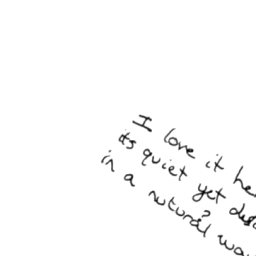 I love it he
its quiet yet
in a nutural wa